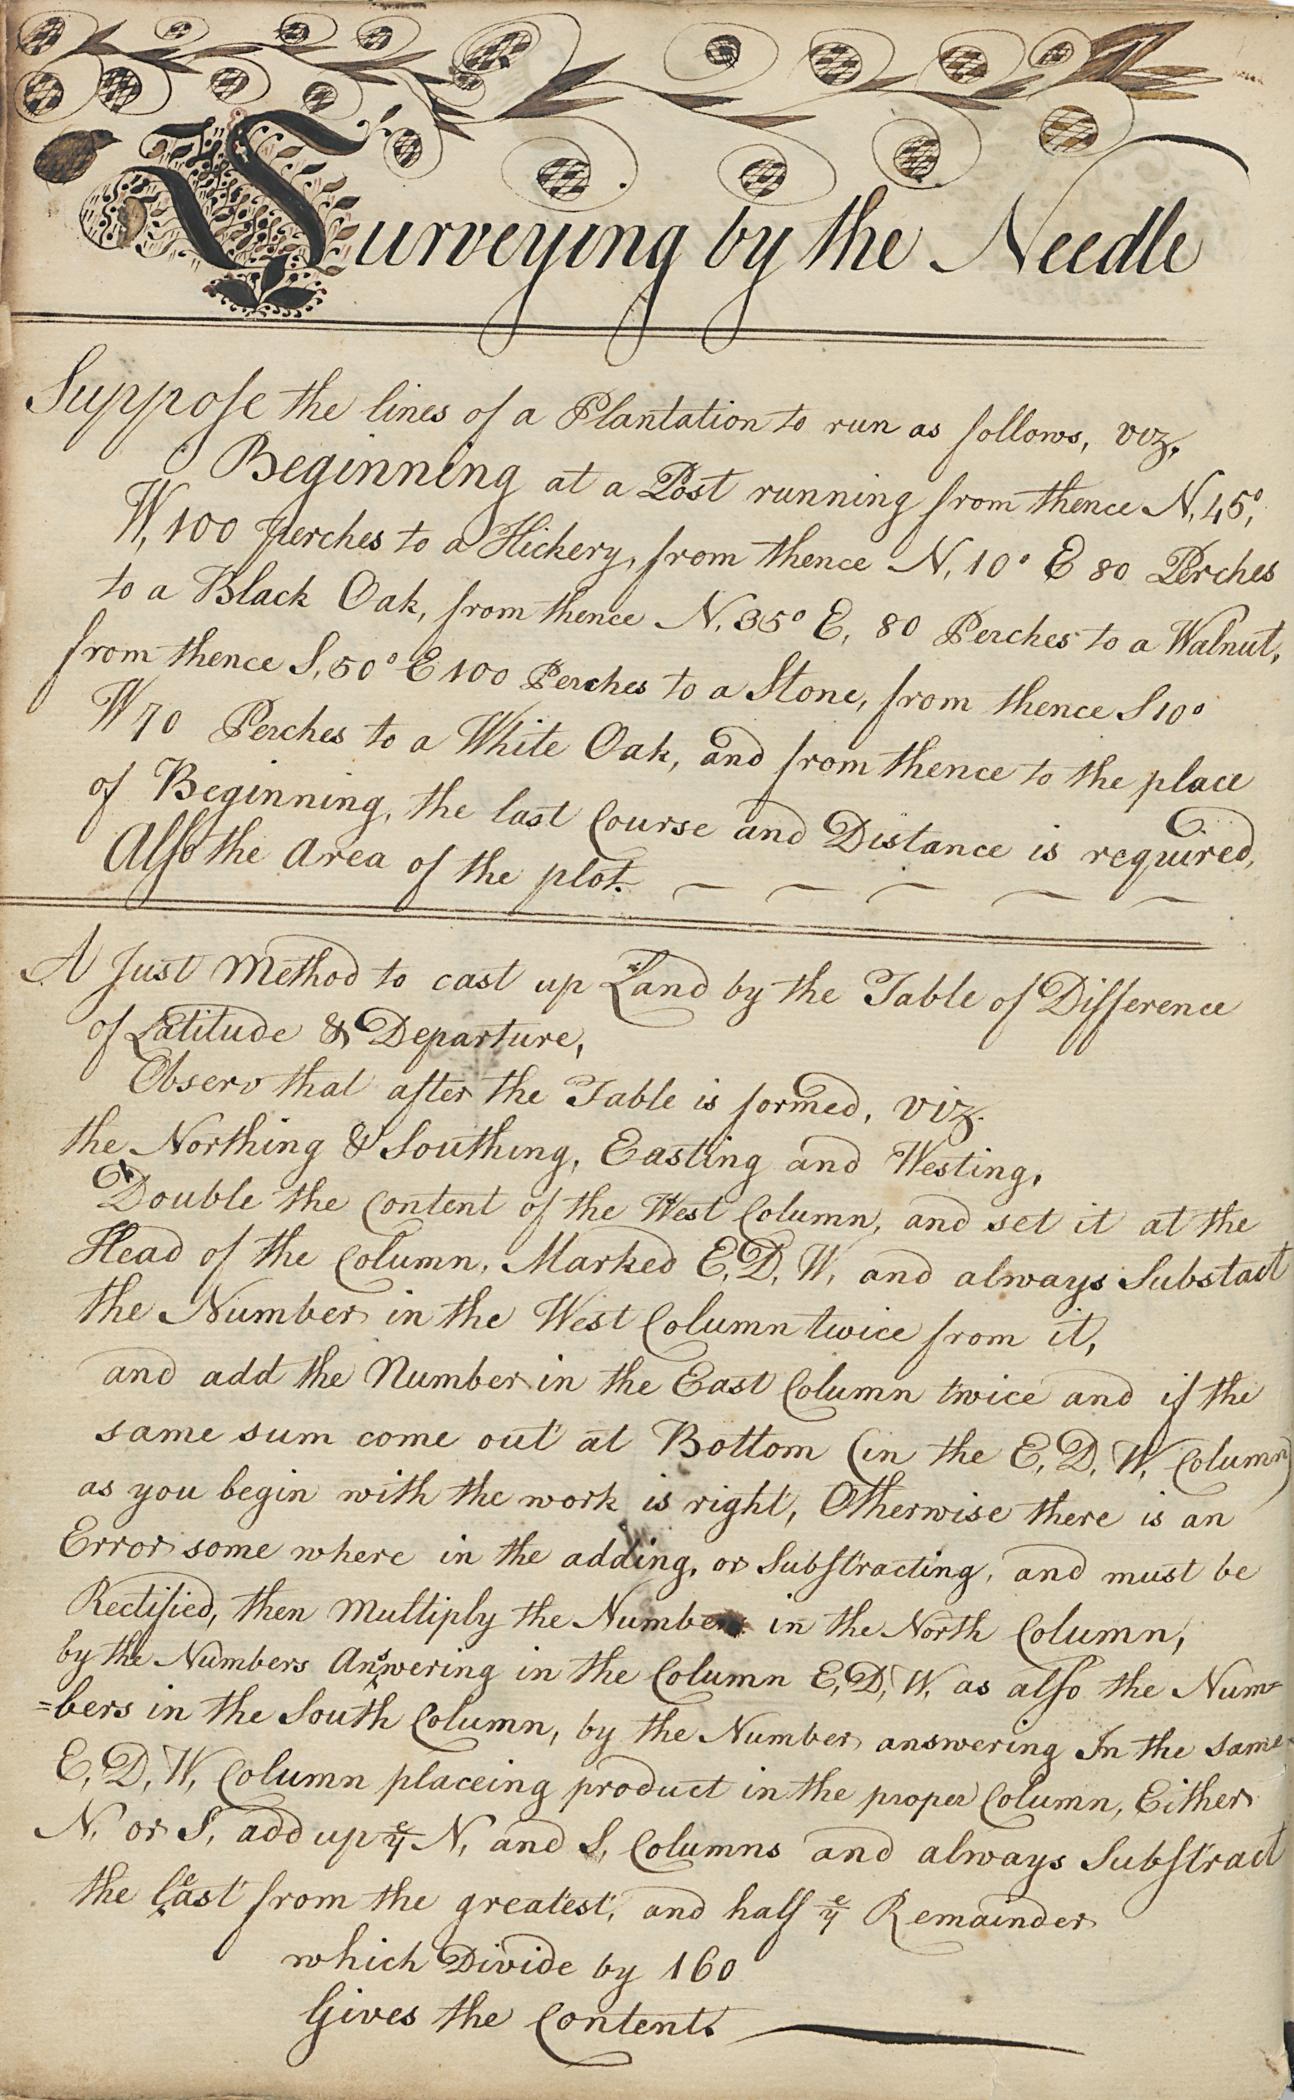 Surveying by the Needle
Suppose the lines of a Plantation to run as follows, viz,
Beginning at a Post running from thence N, 45°,
W, 100 perches to a Hickery, from thence N, 10° E 80 Perches
to a Black Oak, from thence N, 35° E, 80 Perches to a Walnut,
from thence S, 50° E 100 Perches to a Stone, from thence S 10°
W 70 Perches to a White Oak, and from thence to the place
of Beginning, the last Course and Distance is required,
Also the Area of the plot.
A Just Method to cast up Land by the Table of Difference
of Latitude & Departure,
Observ that after the Table is formed, viz.
the Northing & Southing, Easting and Westing,
Double the Content of the West Column, and set it at the
Head of the Column, Marked E, D, W, and always Substact
the Number in the West Column twice from it,
and add the Number in the East Column twice and if the
same sum come out at Bottom (in the E, D, W, Column)
as you begin with the work is right, Otherwise there is an
Error some where in the adding, or Substracting, and must be
Rectified, then Multiply the Number in the North Column,
by the Numbers Answering in the Column E, D, W, as also the Num=
=bers in the South Column, by the Number answering In the same
E, D, W, Column placeing product in the proper Column, Either
N. or S, add up ye N, and S, Columns and always Substract
the least from the greatest, and half ye Remainder
which Divide by 160
Gives the Content.